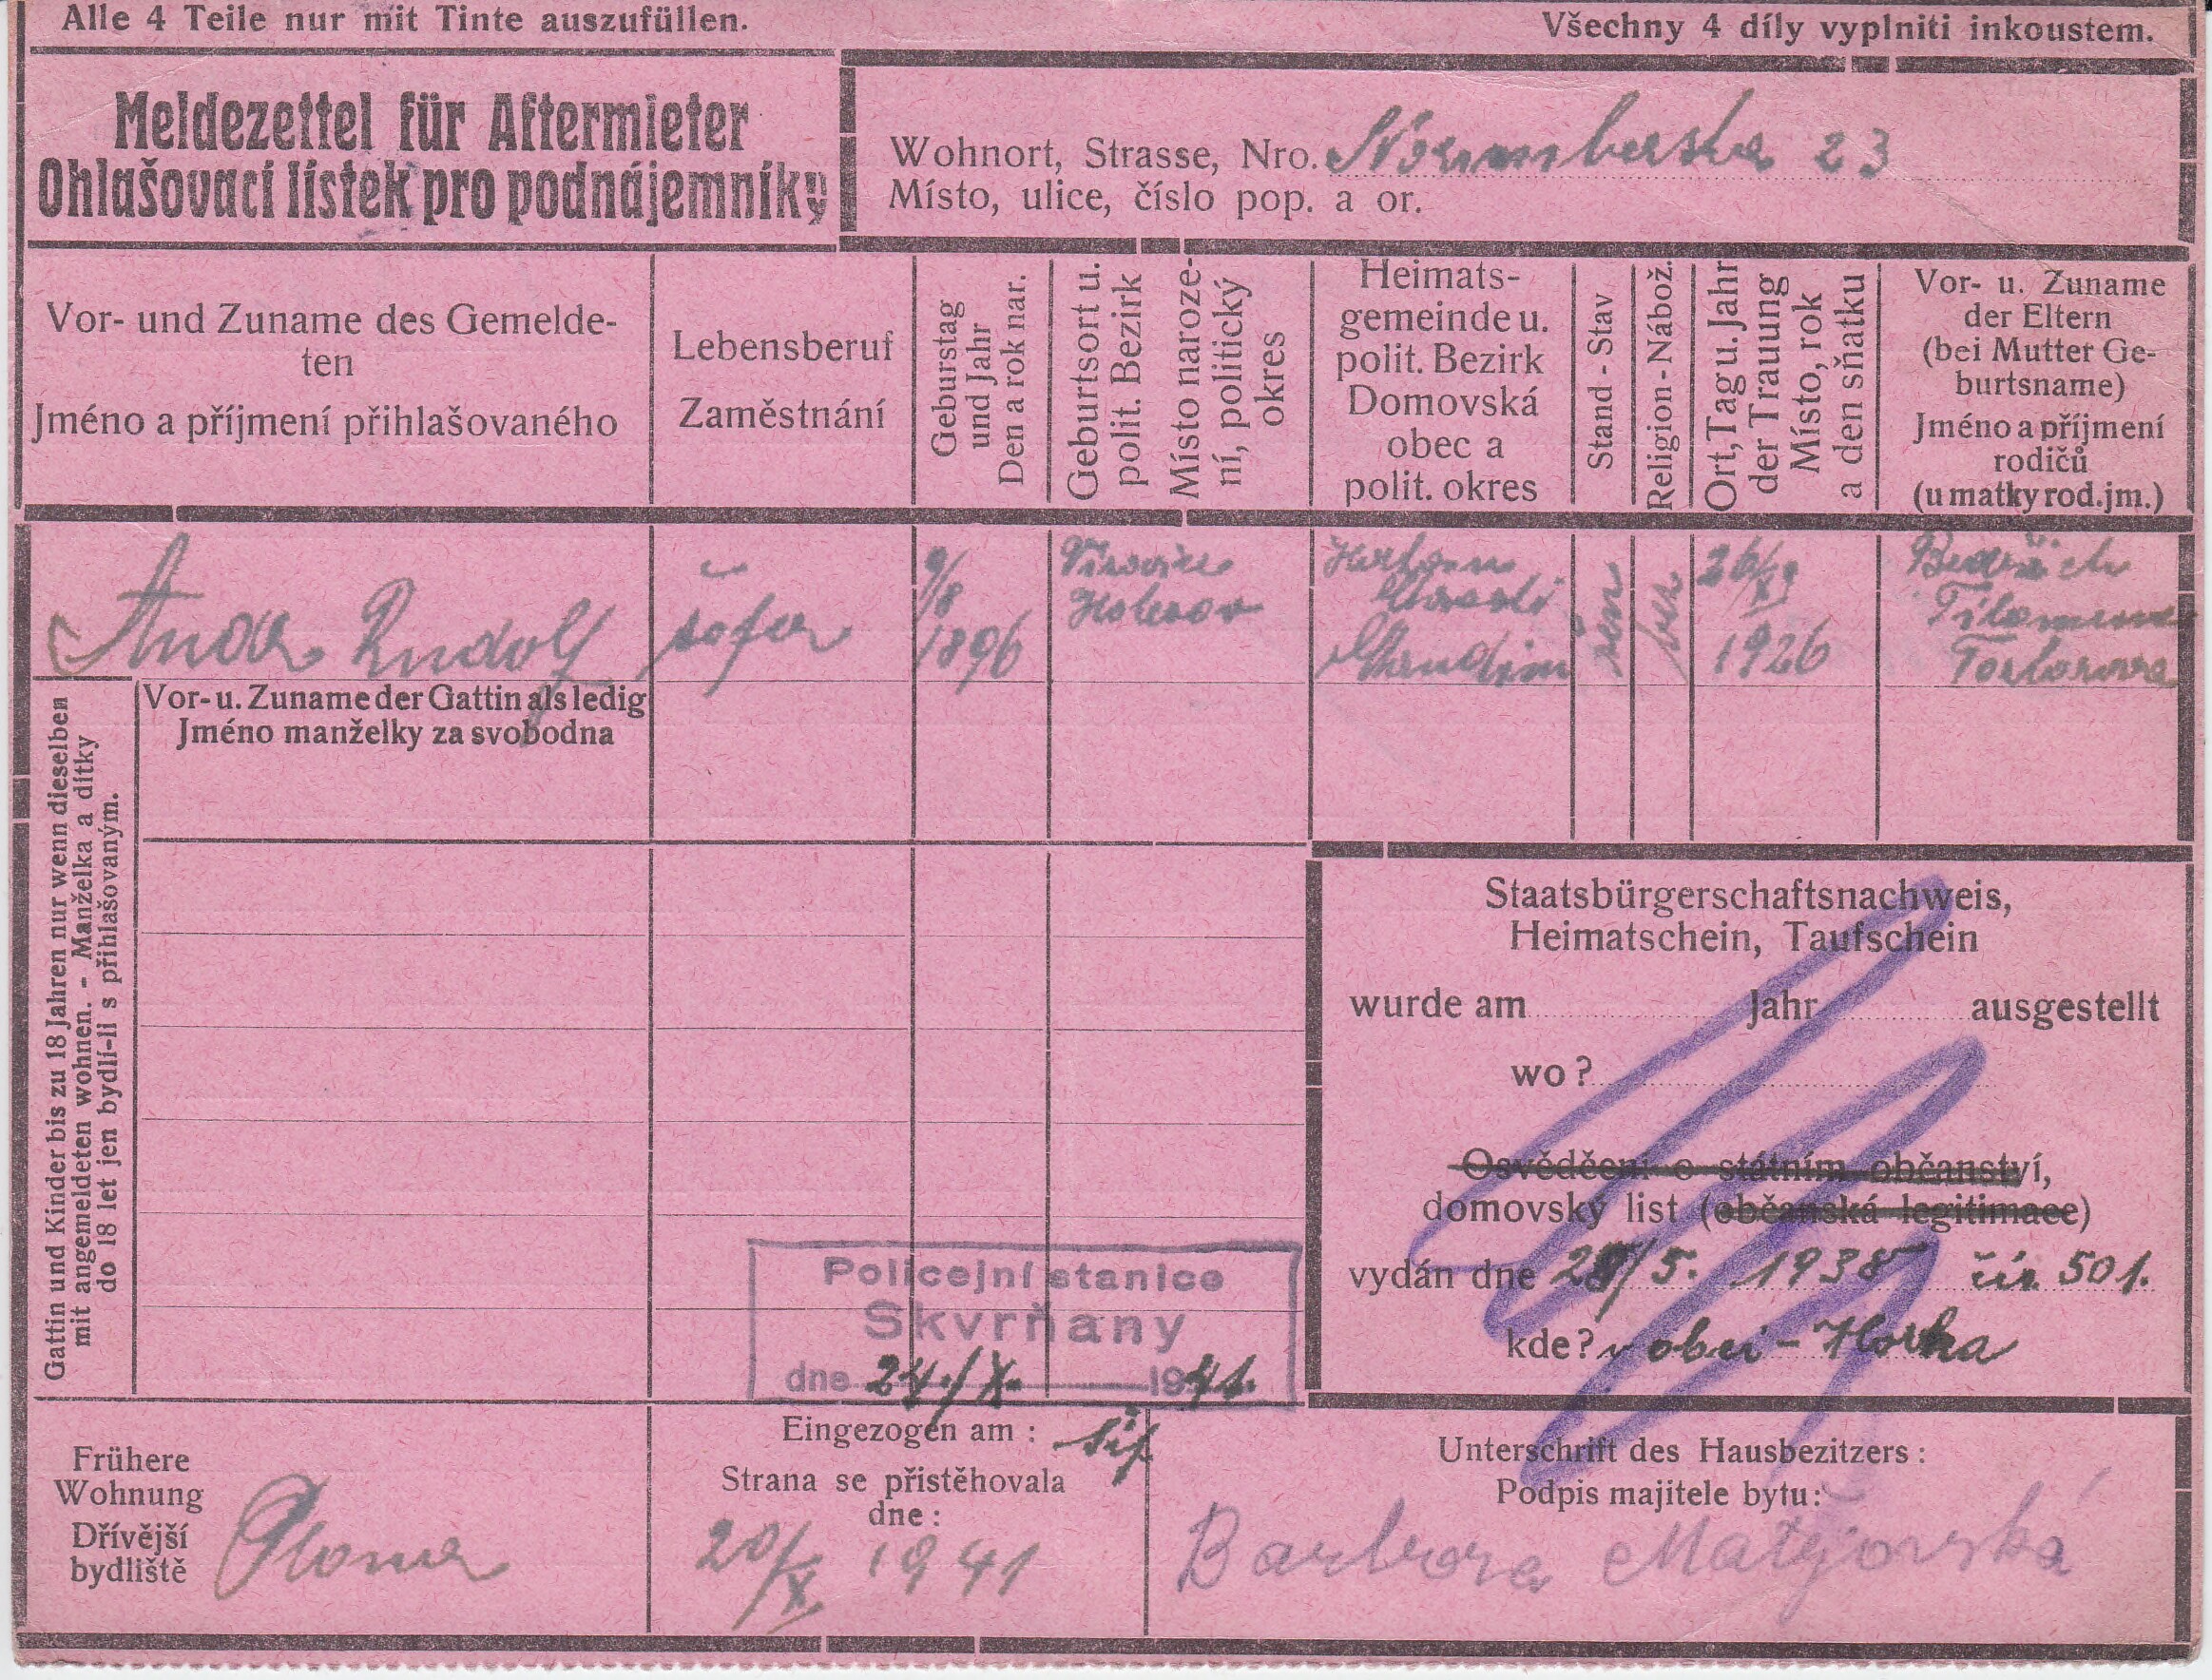 Alle 4 Teile nur mit Tinte auszufüllen.
Všechny 4 díly vyplniti inkoustem.
Meldezettel für Aftermieter
Ohlašovací lístek pro podnájemníky
Wohnort, Strasse, Nro.
23
Místo, ulice, číslo pop. a or.
Vor- und Zuname des Gemelde-
ten
Jméno a příjmení přihlašovaného
Lebensberuf
Zaměstnání
Geburstag
und Jahr
Den a rok nar.
Geburtsort u.
polit. Bezirk
Místo naroze-
ní, politický
okres
Heimats-
gemeinde u.
polit. Bezirk
Domovská
obec a
polit. okres
Stand - Stav
Religion - Nábož.
Ort, Tag u. Jahr
der Trauung
Místo, rok
a den sňatku
Vor- u. Zuname
der Eltern
(bei Mutter Ge-
burtsname)
Jméno a příjmení
rodičů
(u matky rod. jm.)
Rudolf
šofer
9/8
1896
žen
bez
1926
Bedřich
Vor- u. Zuname der Gattin als ledig
Jméno manželky za svobodna
Gattin und Kinder bis zu 18 Jahren nur wenn dieselben
mit angemeldeten wohnen. - Manželka a dítky
do 18 let jen bydlí-li s přihlašovaným.
Staatsbürgerschaftsnachweis,
Heimatschein, Taufschein
wurde am Jahr ausgestellt
wo?
Osvědčení o státním občanství,
domovský list (občanská legitimace)
vydán dne 28/5. 1938 čís. 501.
kde? v obci - Horka
Policejní stanice
Skvrňany
dne 24./X. 1941.
Frühere
Wohnung
Dřívější
bydliště
Eingezogen am:
Strana se přistěhovala
dne:
20/X 1941
Unterschrift des Hausbezitzers:
Podpis majitele bytu:
Barbora Matějovská